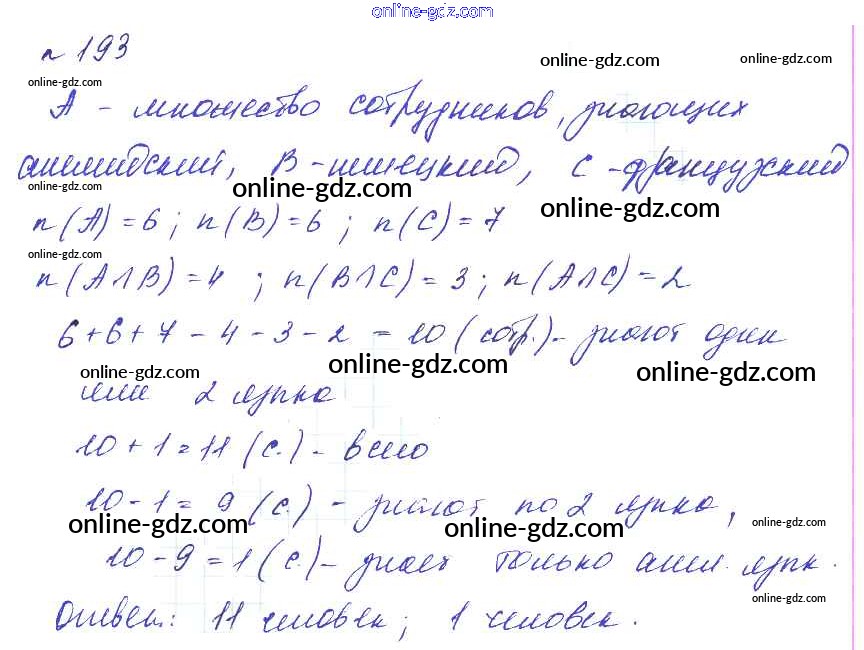 online-gdz.com
n 193
online-gdz.com online-gdz.com
online-gdz.com
A - множество сотрудников, знающих
английский, B - немецкий, C - французский
online-gdz.com online-gdz.com online-gdz.com
n(A) = 6; n(B) = 6; n(C) = 7
online-gdz.com
n(A∩B) = 4; n(B∩C) = 3; n(A∩C) = 2
6 + 6 + 7 - 4 - 3 - 2 = 10 (сотр.) - знают один
online-gdz.com online-gdz.com online-gdz.com
или 2 языка
10 + 1 = 11 (с.) - всего
10 - 1 = 9 (с.) - знают по 2 языка,
online-gdz.com online-gdz.com online-gdz.com
10 - 9 = 1 (с.) - знает только англ. язык.
online-gdz.com
Ответ: 11 человек; 1 человек.